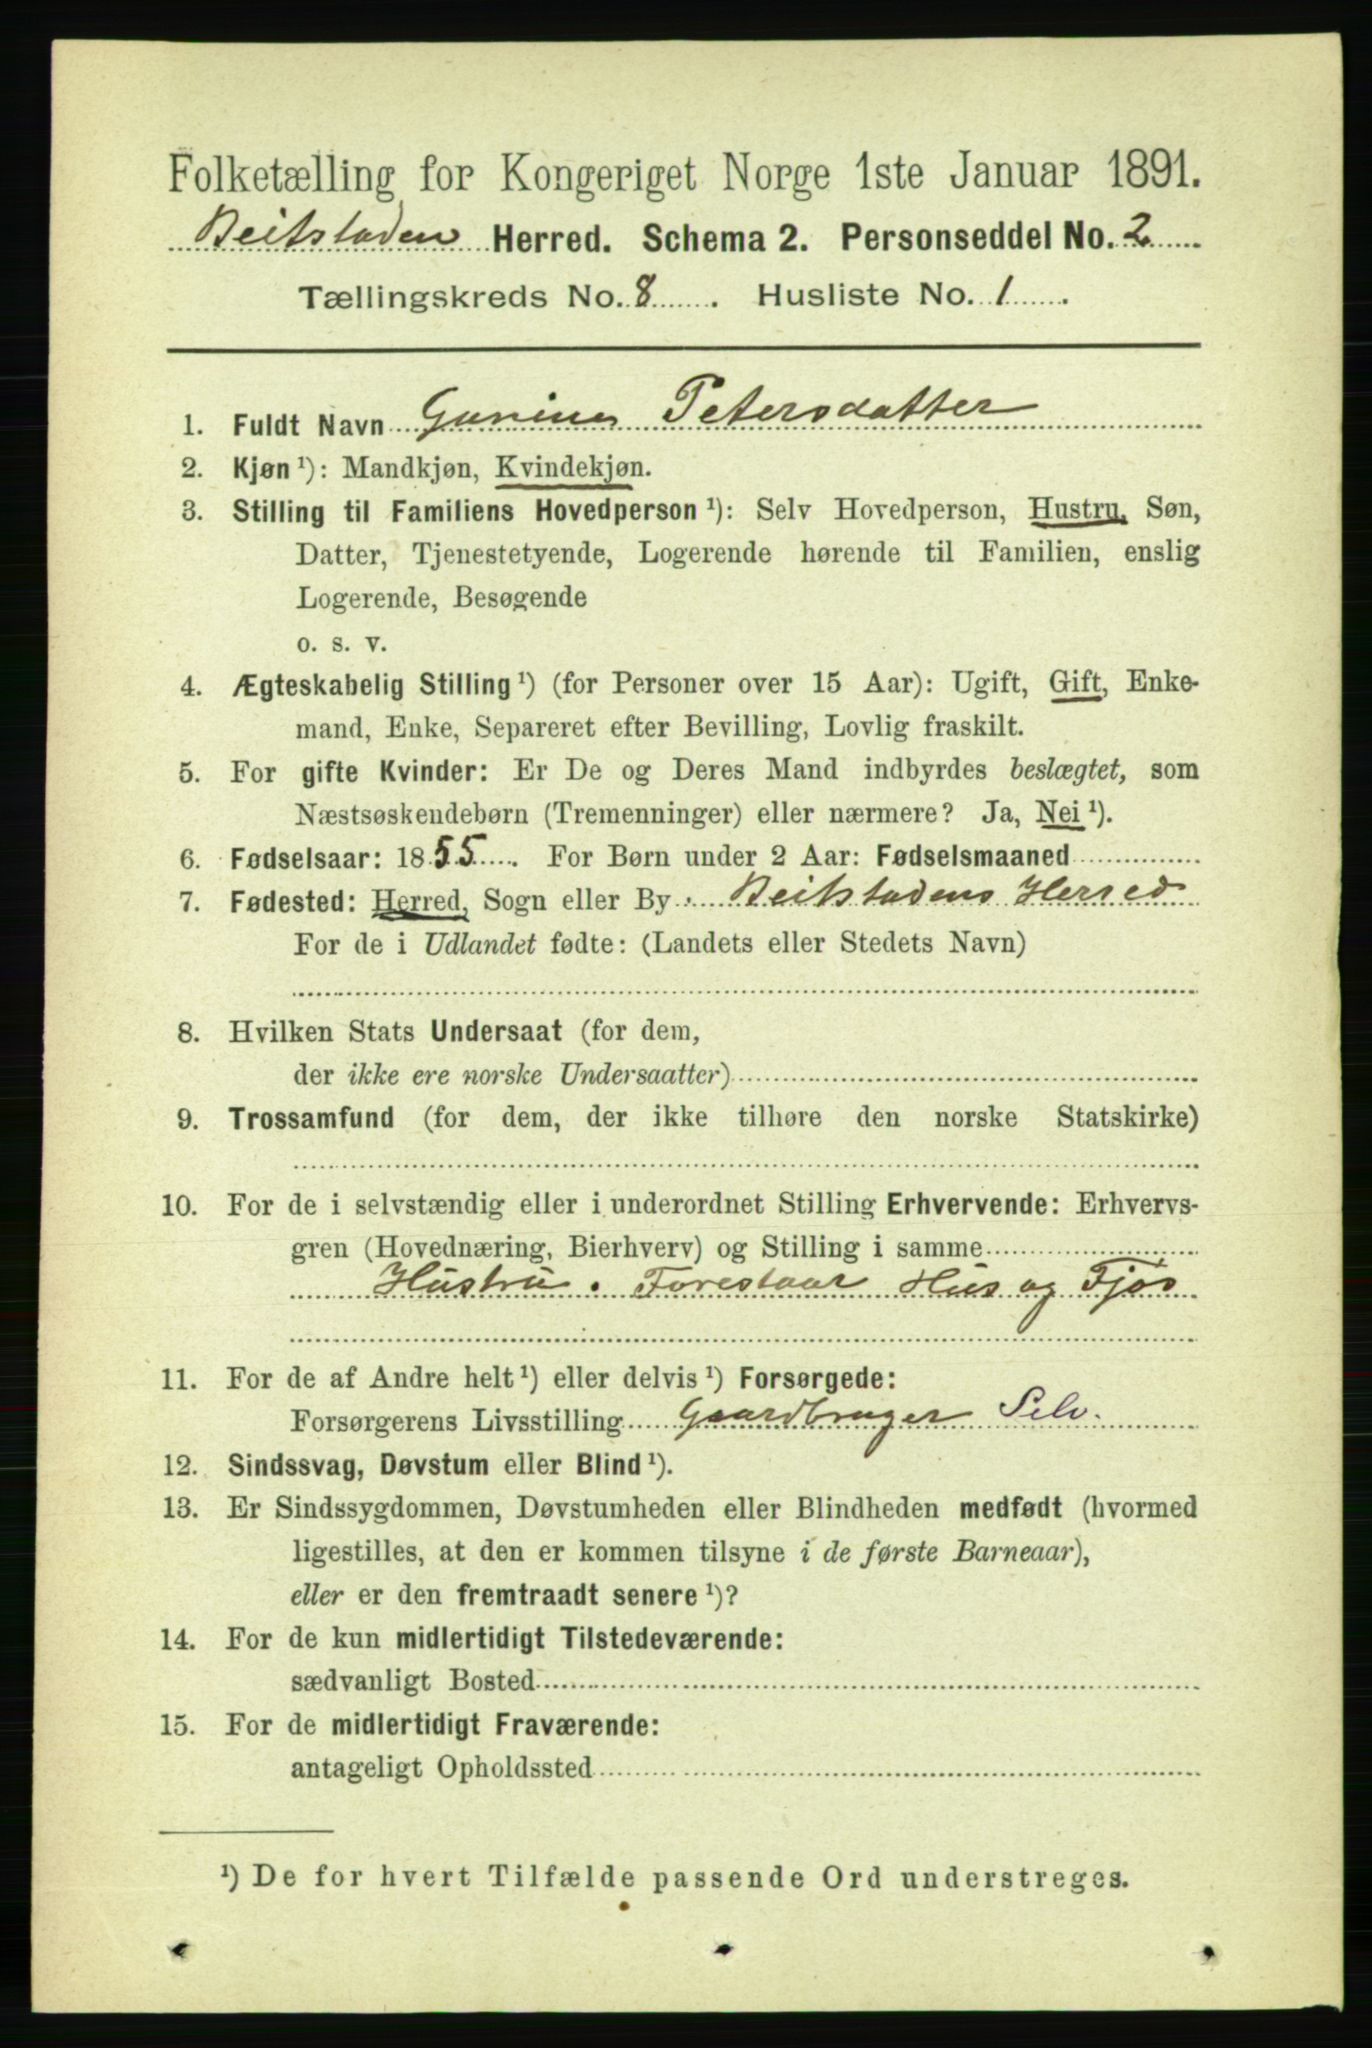 Folketælling for Kongeriget Norge 1ste Januar 1891.
Beitstaden Herred. Schema 2. Personseddel No. 2
Tællingskreds No. 8. Husliste No. 1.
1. Fuldt Navn Gurine Petersdatter
2. Kjøn ¹): Mandkjøn, Kvindekjøn.
3. Stilling til Familiens Hovedperson ¹): Selv Hovedperson, Hustru, Søn,
Datter, Tjenestetyende, Logerende hørende til Familien, enslig
Logerende, Besøgende
o. s. v.
4. Ægteskabelig Stilling ¹) (for Personer over 15 Aar): Ugift, Gift, Enke-
mand, Enke, Separeret efter Bevilling, Lovlig fraskilt.
5. For gifte Kvinder: Er De og Deres Mand indbyrdes beslægtet, som
Næstsøskendebørn (Tremenninger) eller nærmere? Ja, Nei ¹).
6. Fødselsaar: 1855. For Børn under 2 Aar: Fødselsmaaned
7. Fødested: Herred, Sogn eller By Beitstadens Herred
For de i Udlandet fødte: (Landets eller Stedets Navn)
8. Hvilken Stats Undersaat (for dem,
der ikke ere norske Undersaatter)
9. Trossamfund (for dem, der ikke tilhøre den norske Statskirke)
10. For de i selvstændig eller i underordnet Stilling Erhvervende: Erhvervs-
gren (Hovednæring, Bierhverv) og Stilling i samme
Hustru. Forestaar Hus og Fjøs
11. For de af Andre helt ¹) eller delvis ¹) Forsørgede:
Forsørgerens Livsstilling Gaardbruger Selv.
12. Sindssvag, Døvstum eller Blind ¹).
13. Er Sindssygdommen, Døvstumheden eller Blindheden medfødt (hvormed
ligestilles, at den er kommen tilsyne i de første Barneaar),
eller er den fremtraadt senere ¹)?
14. For de kun midlertidigt Tilstedeværende:
sædvanligt Bosted
15. For de midlertidigt Fraværende:
antageligt Opholdssted
¹) De for hvert Tilfælde passende Ord understreges.